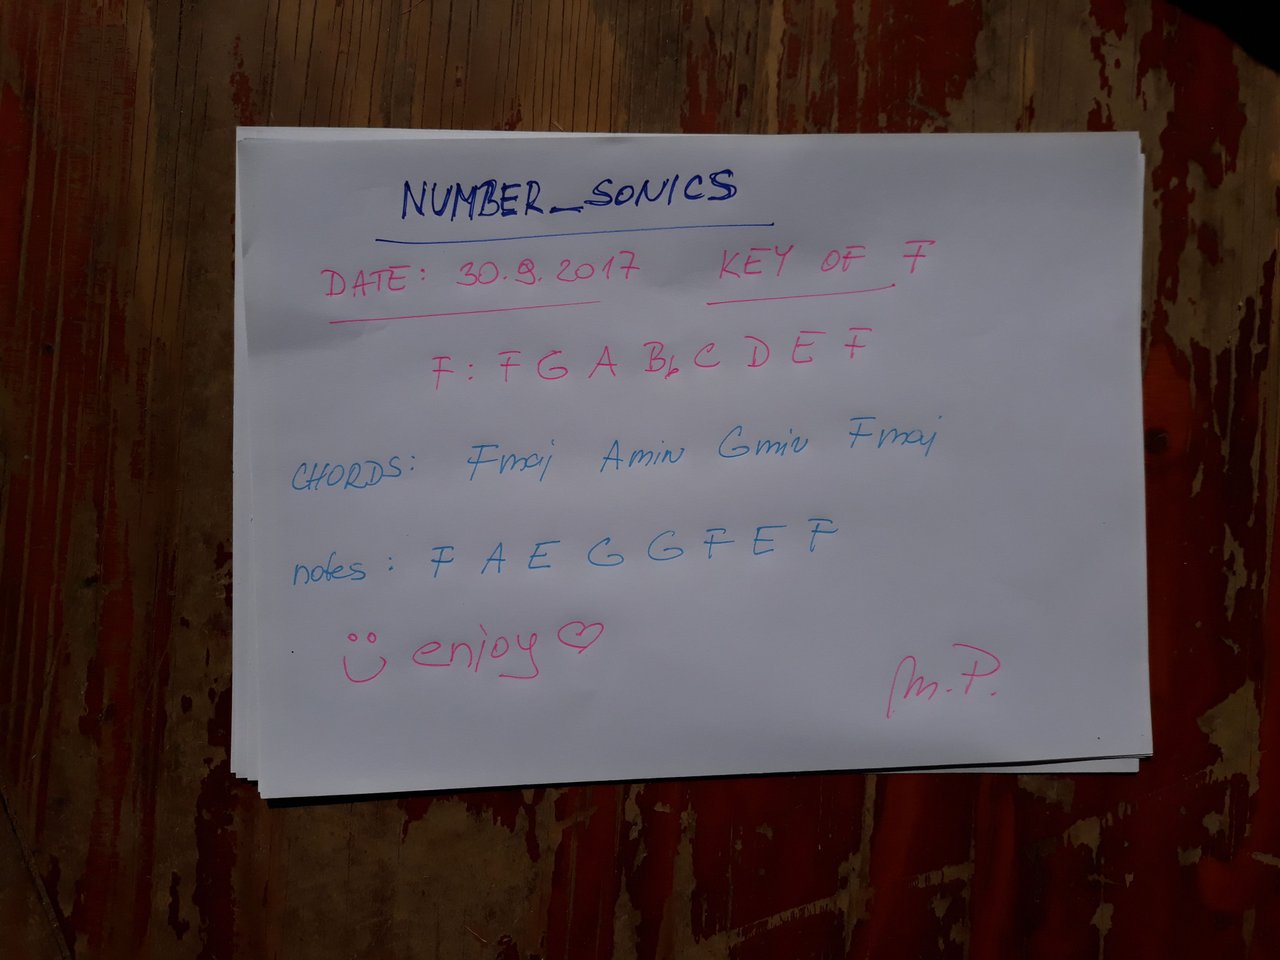 NUMBER_SONICS
DATE: 30.9.2017 KEY OF F
F: F G A Bb C D E F
CHORDS: Fmaj Amin Gmin Fmaj
notes: F A E G G F E F
enjoy
M.P.